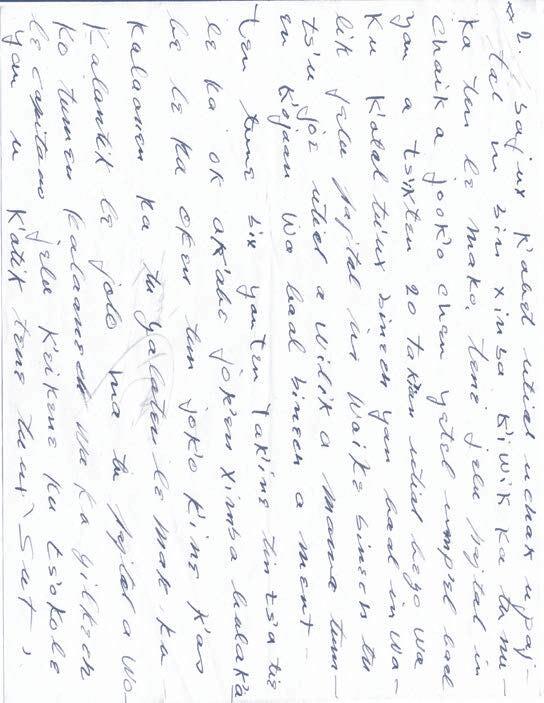 2. sajux k'abet utial uchak upaj-
tal in bin ximba k'iwik ka tu nu-
ka ten le mako. tene jelu pajtal in
chaika jook'o chen yatel ump'el baal
yan a tsikten 20 tak'an utial beyo wa
ku k'atal tu'ux binech yan baal in wa-
lik jelu pajtal in waike binech tu
ts'u joj utial a wilik a mama tum-
en k'ojaan wa baal binech a ment-
ten tune bix yanten tak'ine tin ts'a tie
le ka ok ak'abe jok'en ximba balak'a
be le ka oken tun jok'o k'ine k'as
kalaanen ka tu yalaten le mak. ka
kalantik le jolo ma tu pajtal a wo-
ko tumen kalaanech wa ka yilkech
le capitano jelu k'eikene ka ts'okole
yan u k'atik tene tu'ux Sut,